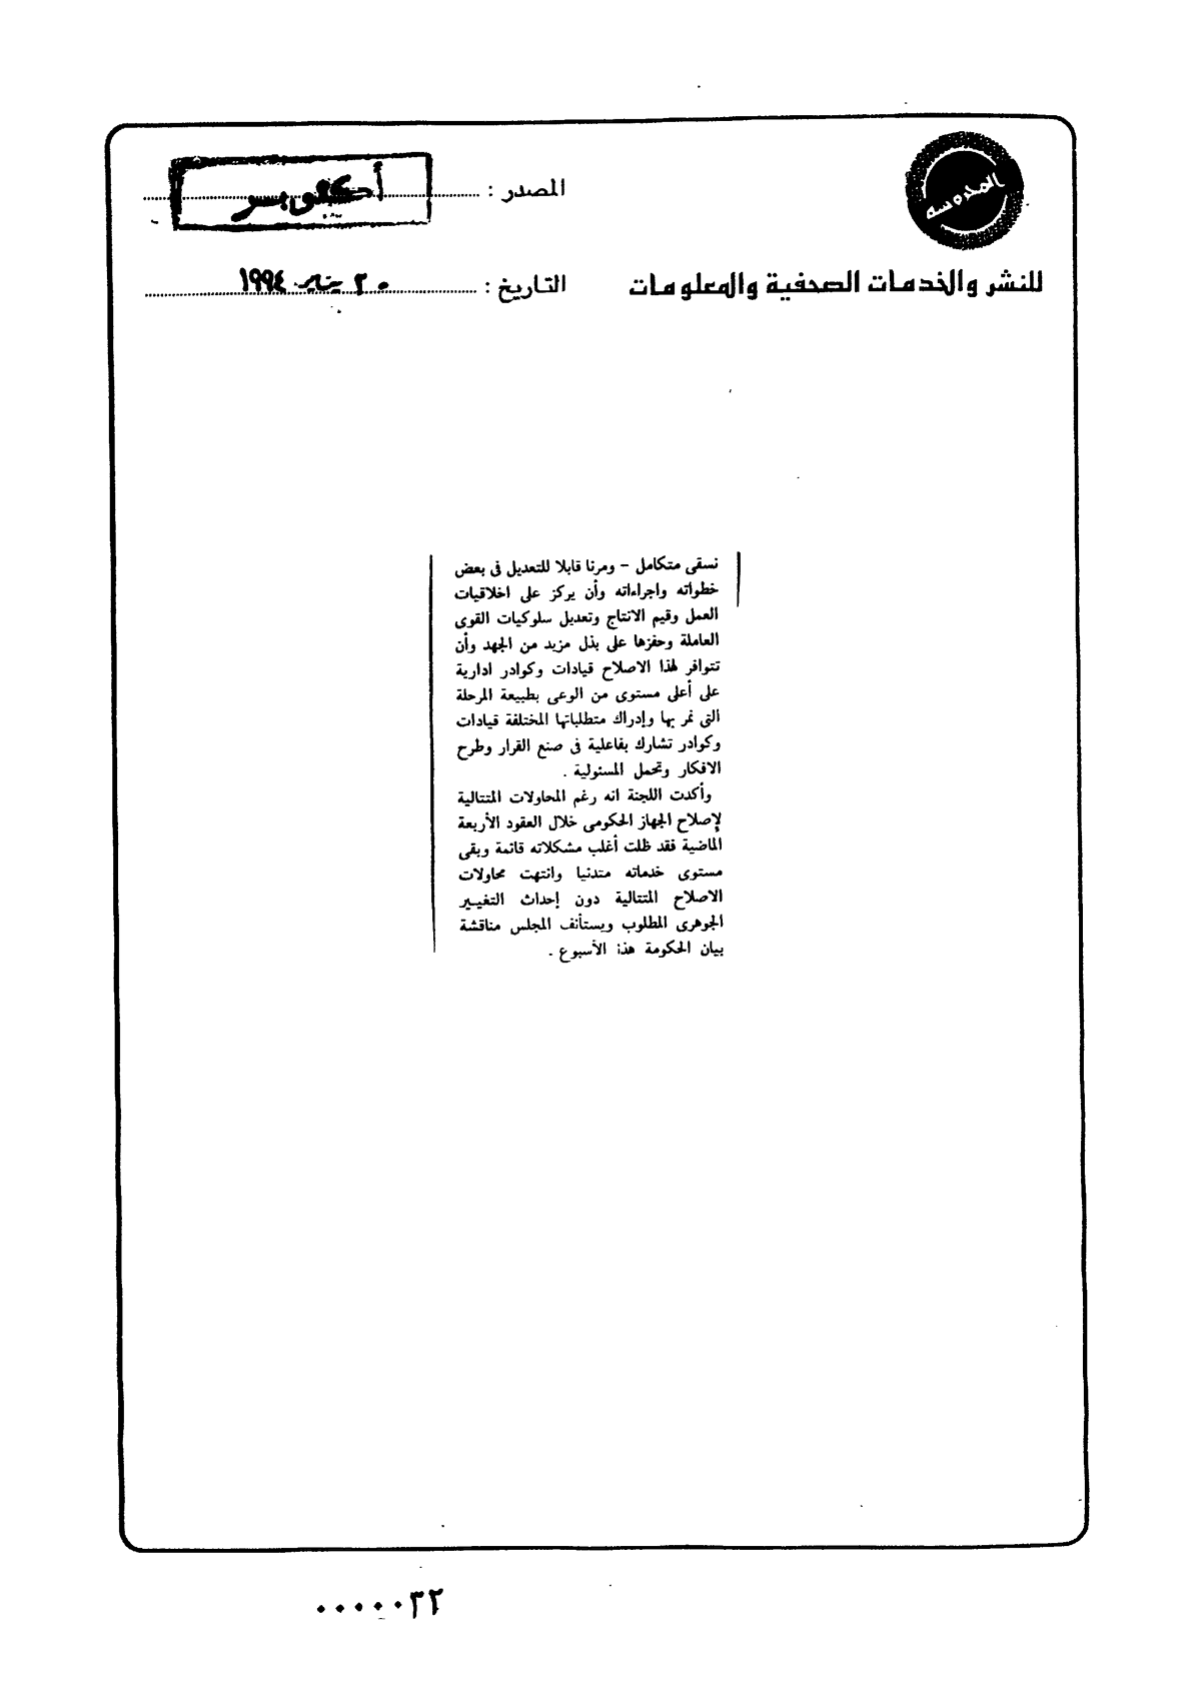 المحروسه
المصدر :
أكتوبر
للنشر والخدمات الصحفية والمعلومات
التاريخ : ٣٠ يناير ١٩٩٤
نسقى متكامل – ومرنا قابلا للتعديل فى بعض
خطواته واجراءاته وأن يركز على اخلاقيات
العمل وقيم الانتاج وتعديل سلوكيات القوى
العاملة وحفزها على بذل مزيد من الجهد وأن
تتوافر لهذا الاصلاح قيادات وكوادر ادارية
على أعلى مستوى من الوعى بطبيعة المرحلة
التى نمر بها وإدراك متطلباتها المختلفة قيادات
وكوادر تشارك بفاعلية فى صنع القرار وطرح
الافكار وتحمل المسئولية .
وأكدت اللجنة انه رغم المحاولات المتتالية
لإصلاح الجهاز الحكومى خلال العقود الأربعة
الماضية فقد ظلت أغلب مشكلاته قائمة وبقى
مستوى خدماته متدنيا وانتهت محاولات
الاصلاح المتتالية دون إحداث التغيير
الجوهرى المطلوب ويستأنف المجلس مناقشة
بيان الحكومة هذا الأسبوع .
٠٠٠٠٠٣٢